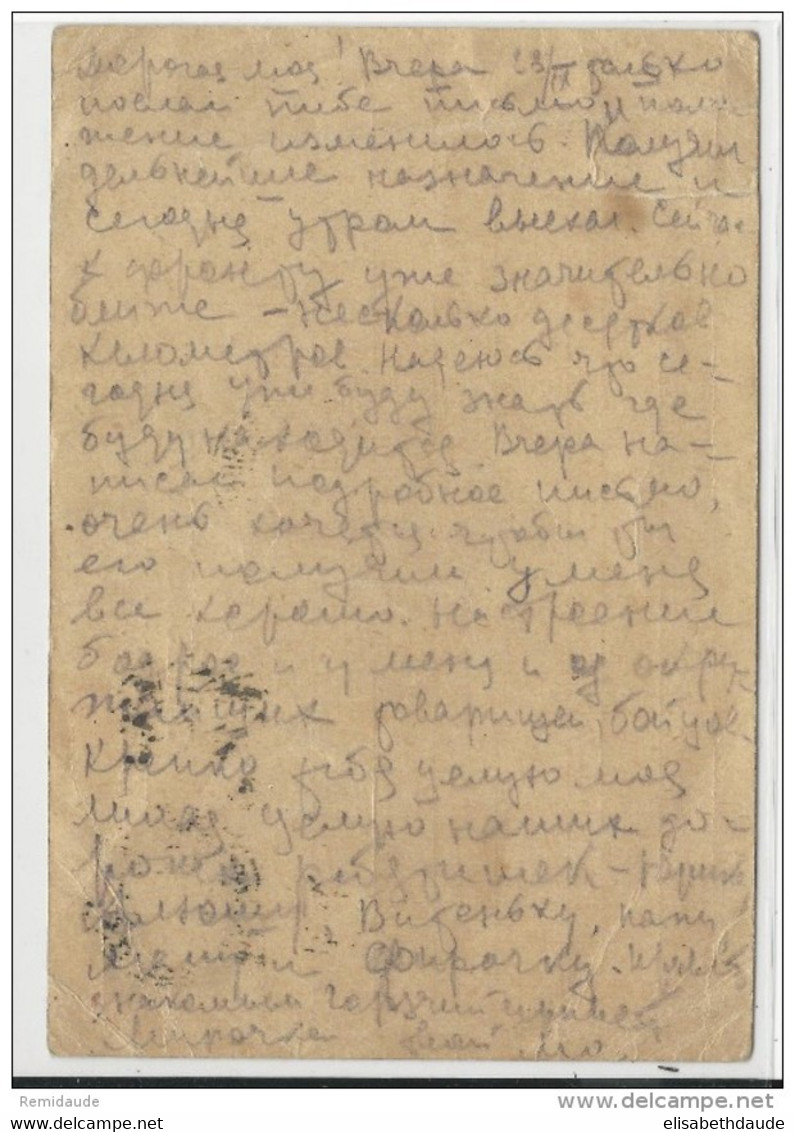 Дорогая моя! Вчера 23/IX только
послал тебе письмо и поло-
жение изменилось. Получил
дальнейшие назначение и
сегодня утром выехал. Сейчас
к фронту уже значительно
ближе - несколько десятков
километров. Надеюсь что се-
годня уже буду знать где
буду находится. Вчера на-
писал подробное письмо,
очень хочется чтобы ты
его получил у меня
все хорошо. Настроение
бодрое и у меня и у окру-
жающих товарищей, бойцов.
Крепко тебя целую моя
милая целую наших до-
рогих ребятишек - Юрика
Витеньку, папу
Фирочку.
знакомым горячий привет
Твой
Remidaude
delcampe.net
elisabethdaude